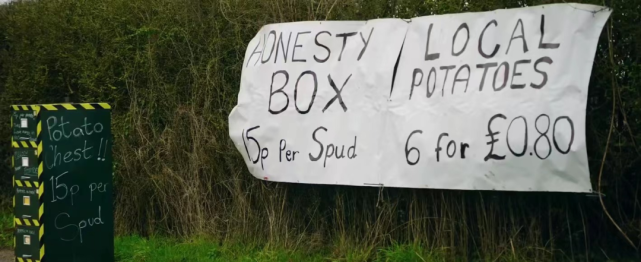 HONESTY
BOX
15p Per Spud
LOCAL
POTATOES
6 for £0.80
Potato
Chest!!
15p per
Spud